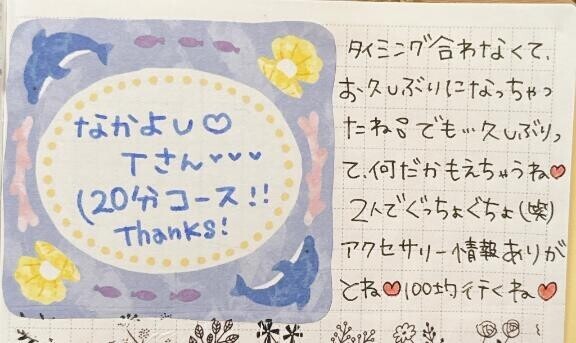 なかよし♡
Tさん♥♥♥
(20分コース!!
Thanks!
タイミング合わなくて、
お久しぶりになっちゃっ
たね。でも…久しぶりっ
て、何だかもえちゃうね♥
2人でぐっちょぐちょ(笑)
アクセサリー情報ありが
とね♥100均行くね♥